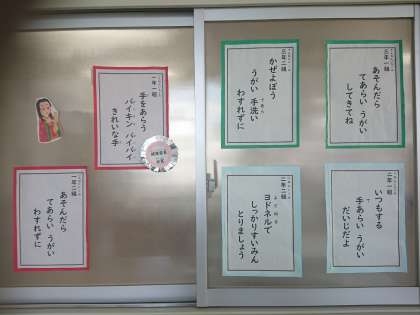 三年一組
あそんだら
てあらい うがい
してきてね
三年二組
かぜよぼう
うがい 手洗い
わすれずに
二年一組
いつもする
手あらい うがい
だいじだよ
二年二組
ヨドネルで
しっかりすいみん
とりましょう
一年一組
手をあらう
バイキン バイバイ
きれいな手
一年二組
あそんだら
てあらい うがい
わすれずに